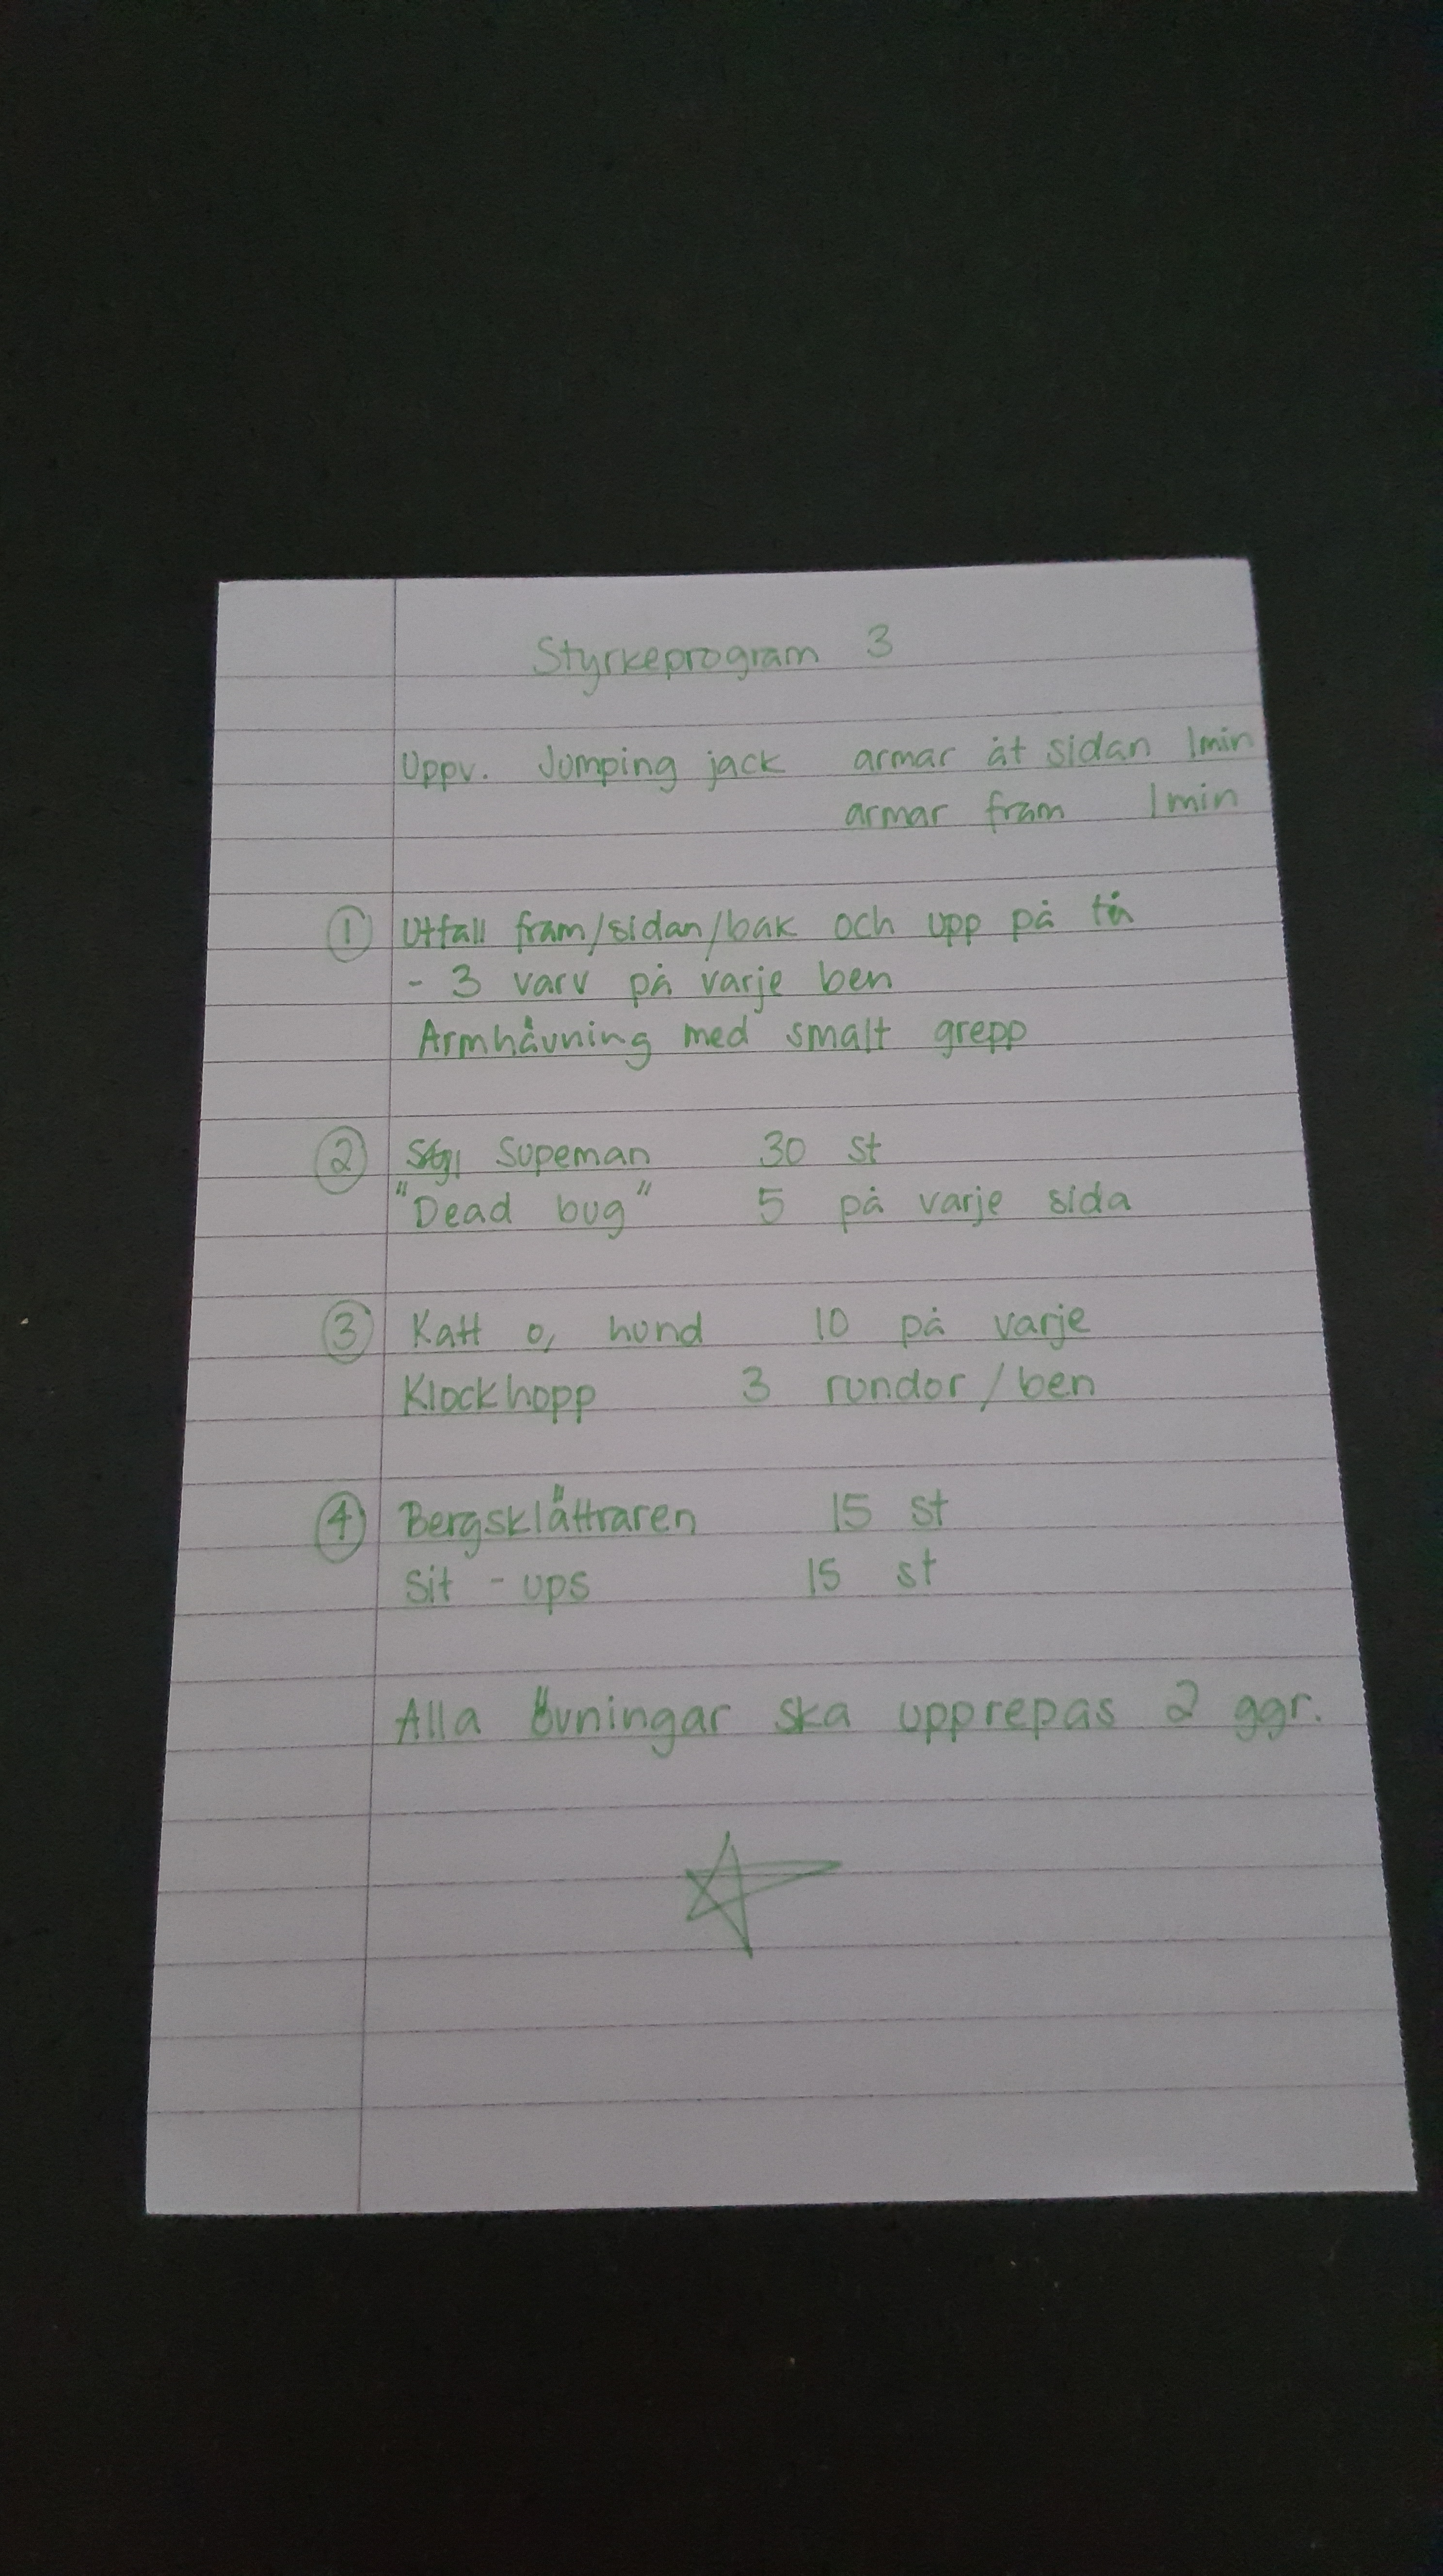 Styrkeprogram 3
Uppv. Jumping jack armar åt sidan 1min
armar fram 1min
① Utfall fram/sidan/bak och upp på tå
- 3 varv på varje ben
Armhävning med smalt grepp
② Supeman 30 st
"Dead bug" 5 på varje sida
③ Katt o, hund 10 på varje
Klockhopp 3 rundor/ben
④ Bergsklättraren 15 st
Sit - ups 15 st
Alla övningar ska upprepas 2 ggr.